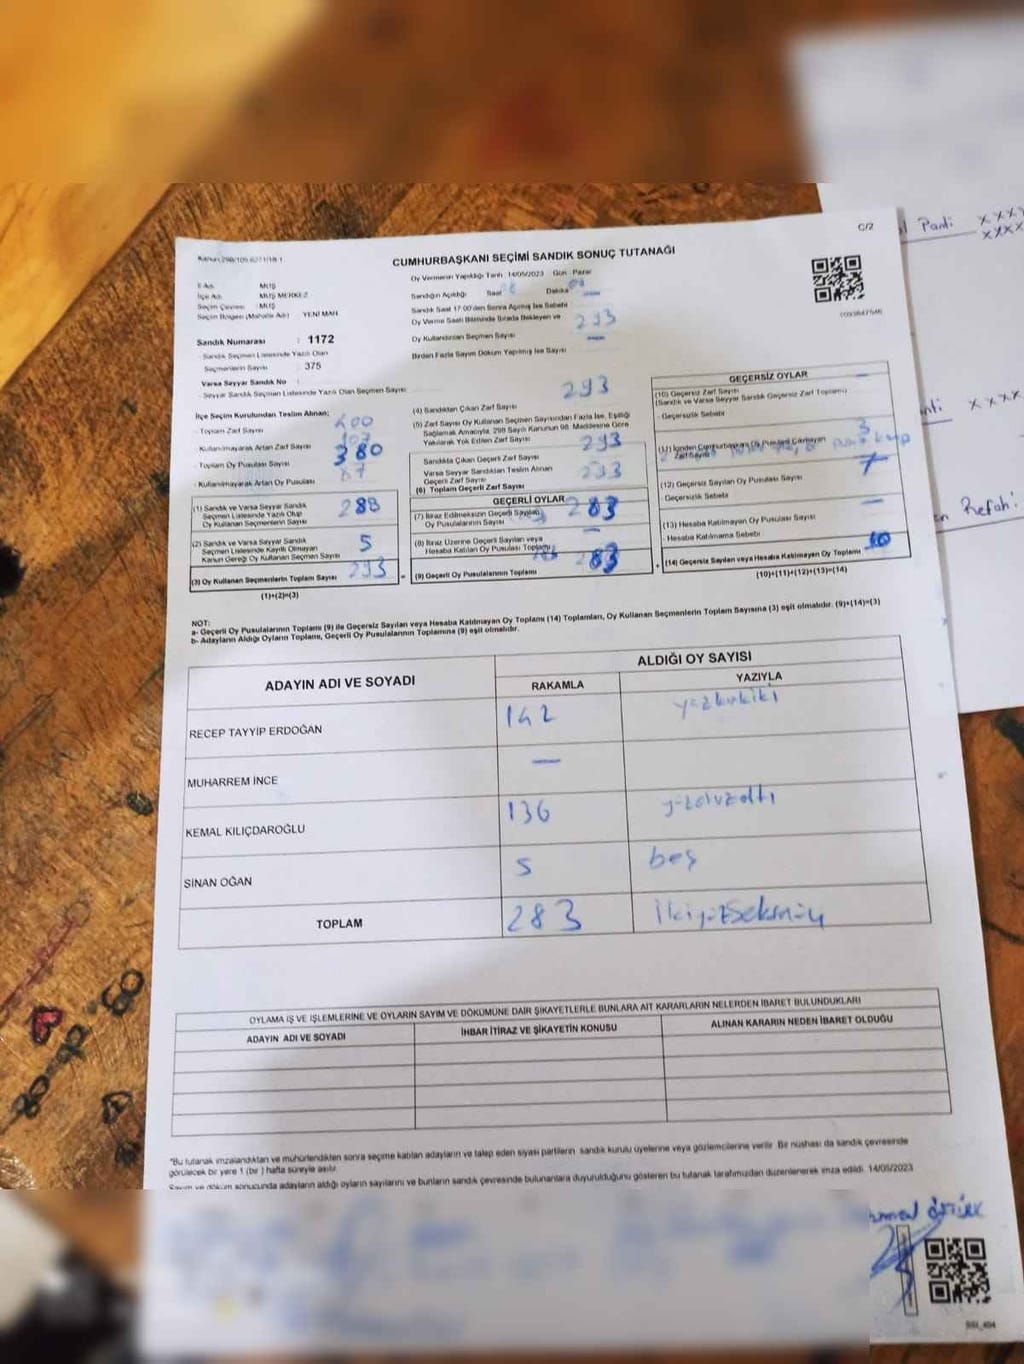 C/2
CUMHURBAŞKANI SEÇİMİ SANDIK SONUÇ TUTANAĞI
Oy Vermenin Yapıldığı Tarih 14/05/2023 Gün Pazar
İl Adı MUŞ
İlçe Adı MUŞ MERKEZ
Seçim Çevresi MUŞ
Seçim Bölgesi (Mahalle Adı) YENİ MAH.
Sandığın Açıldığı Saat 08 Dakika
Sandık Saat 17:00'den Sonra Açılmış İse Sebebi
Oy Verme Saati Bitiminde Sırada Bekleyen ve
Oy Kullandırılan Seçmen Sayısı
293
Birden Fazla Sayım Döküm Yapılmış İse Sayısı
Sandık Numarası : 1172
Sandık Seçmen Listesinde Yazılı Olan
Seçmenlerin Sayısı : 375
Varsa Seyyar Sandık No :
Seyyar Sandık Seçmen Listesinde Yazılı Olan Seçmen Sayısı
İlçe Seçim Kurulundan Teslim Alınan;
Toplam Zarf Sayısı 400
Kullanılmayarak Artan Zarf Sayısı 107
Toplam Oy Pusulası Sayısı 380
Kullanılmayarak Artan Oy Pusulası 87
(1) Sandık ve Varsa Seyyar Sandık
Seçmen Listesinde Yazılı Olup
Oy Kullanan Seçmenlerin Sayısı 288
(2) Sandık ve Varsa Seyyar Sandık
Seçmen Listesinde Kayıtlı Olmayan
Kanun Gereği Oy Kullanan Seçmen Sayısı 5
(3) Oy Kullanan Seçmenlerin Toplam Sayısı 293
(1)+(2)=(3)
(4) Sandıktan Çıkan Zarf Sayısı 293
(5) Zarf Sayısı Oy Kullanan Seçmen Sayısından Fazla İse, Eşitliği
Sağlamak Amacıyla, 298 Sayılı Kanunun 98. Maddesine Göre
Yakılarak Yok Edilen Zarf Sayısı
Sandıkta Çıkan Geçerli Zarf Sayısı 293
Varsa Seyyar Sandıktan Teslim Alınan
Geçerli Zarf Sayısı
(6) Toplam Geçerli Zarf Sayısı 293
GEÇERLİ OYLAR
(7) İtiraz Edilmeksizin Geçerli Sayılan
Oy Pusulalarının Sayısı 283
(8) İtiraz Üzerine Geçerli Sayılan veya
Hesaba Katılan Oy Pusulası Toplamı
(9) Geçerli Oy Pusulalarının Toplamı 283
GEÇERSİZ OYLAR
(10) Geçersiz Zarf Sayısı
(Sandık ve Varsa Seyyar Sandık Geçersiz Zarf Toplamı)
- Geçersizlik Sebebi
3
(11) İçinden Cumhurbaşkanı Oy Pusulası Çıkmayan
Zarf Sayısı
(12) Geçersiz Sayılan Oy Pusulası Sayısı 7
Geçersizlik Sebebi
(13) Hesaba Katılmayan Oy Pusulası Sayısı
- Hesaba Katılmama Sebebi
(14) Geçersiz Sayılan veya Hesaba Katılmayan Oy Toplamı 10
(10)+(11)+(12)+(13)=(14)
NOT:
a- Geçerli Oy Pusulalarının Toplamı (9) ile Geçersiz Sayılan veya Hesaba Katılmayan Oy Toplamı (14) Toplamları, Oy Kullanan Seçmenlerin Toplam Sayısına (3) eşit olmalıdır. (9)+(14)=(3)
b- Adayların Aldığı Oyların Toplamı, Geçerli Oy Pusulalarının Toplamına (9) eşit olmalıdır.
ADAYIN ADI VE SOYADI
ALDIĞI OY SAYISI
RAKAMLA YAZIYLA
RECEP TAYYİP ERDOĞAN 142 yüzkırkiki
MUHARREM İNCE —
KEMAL KILIÇDAROĞLU 136 yüzotuzaltı
SİNAN OĞAN 5 beş
TOPLAM 283 ikiyüzseksenüç
OYLAMA İŞ VE İŞLEMLERİNE VE OYLARIN SAYIM VE DÖKÜMÜNE DAİR ŞİKAYETLERLE BUNLARA AİT KARARLARIN NELERDEN İBARET BULUNDUKLARI
ADAYIN ADI VE SOYADI İHBAR İTİRAZ VE ŞİKAYETİN KONUSU ALINAN KARARIN NEDEN İBARET OLDUĞU
"Bu tutanak imzalandıktan ve mühürlendikten sonra seçime katılan adayların ve talep eden siyasi partilerin sandık kurulu üyelerine veya gözlemcilerine verilir. Bir nüshası da sandık çevresinde
görülecek bir yere 1 (bir) hafta süreyle asılır.
Sayım ve döküm sonucunda adayların aldığı oyların sayılarını ve bunların sandık çevresinde bulunanlara duyurulduğunu gösteren bu tutanak tarafımızdan düzenlenerek imza edildi. 14/05/2023
Parti xxxx
xxxx
Refah